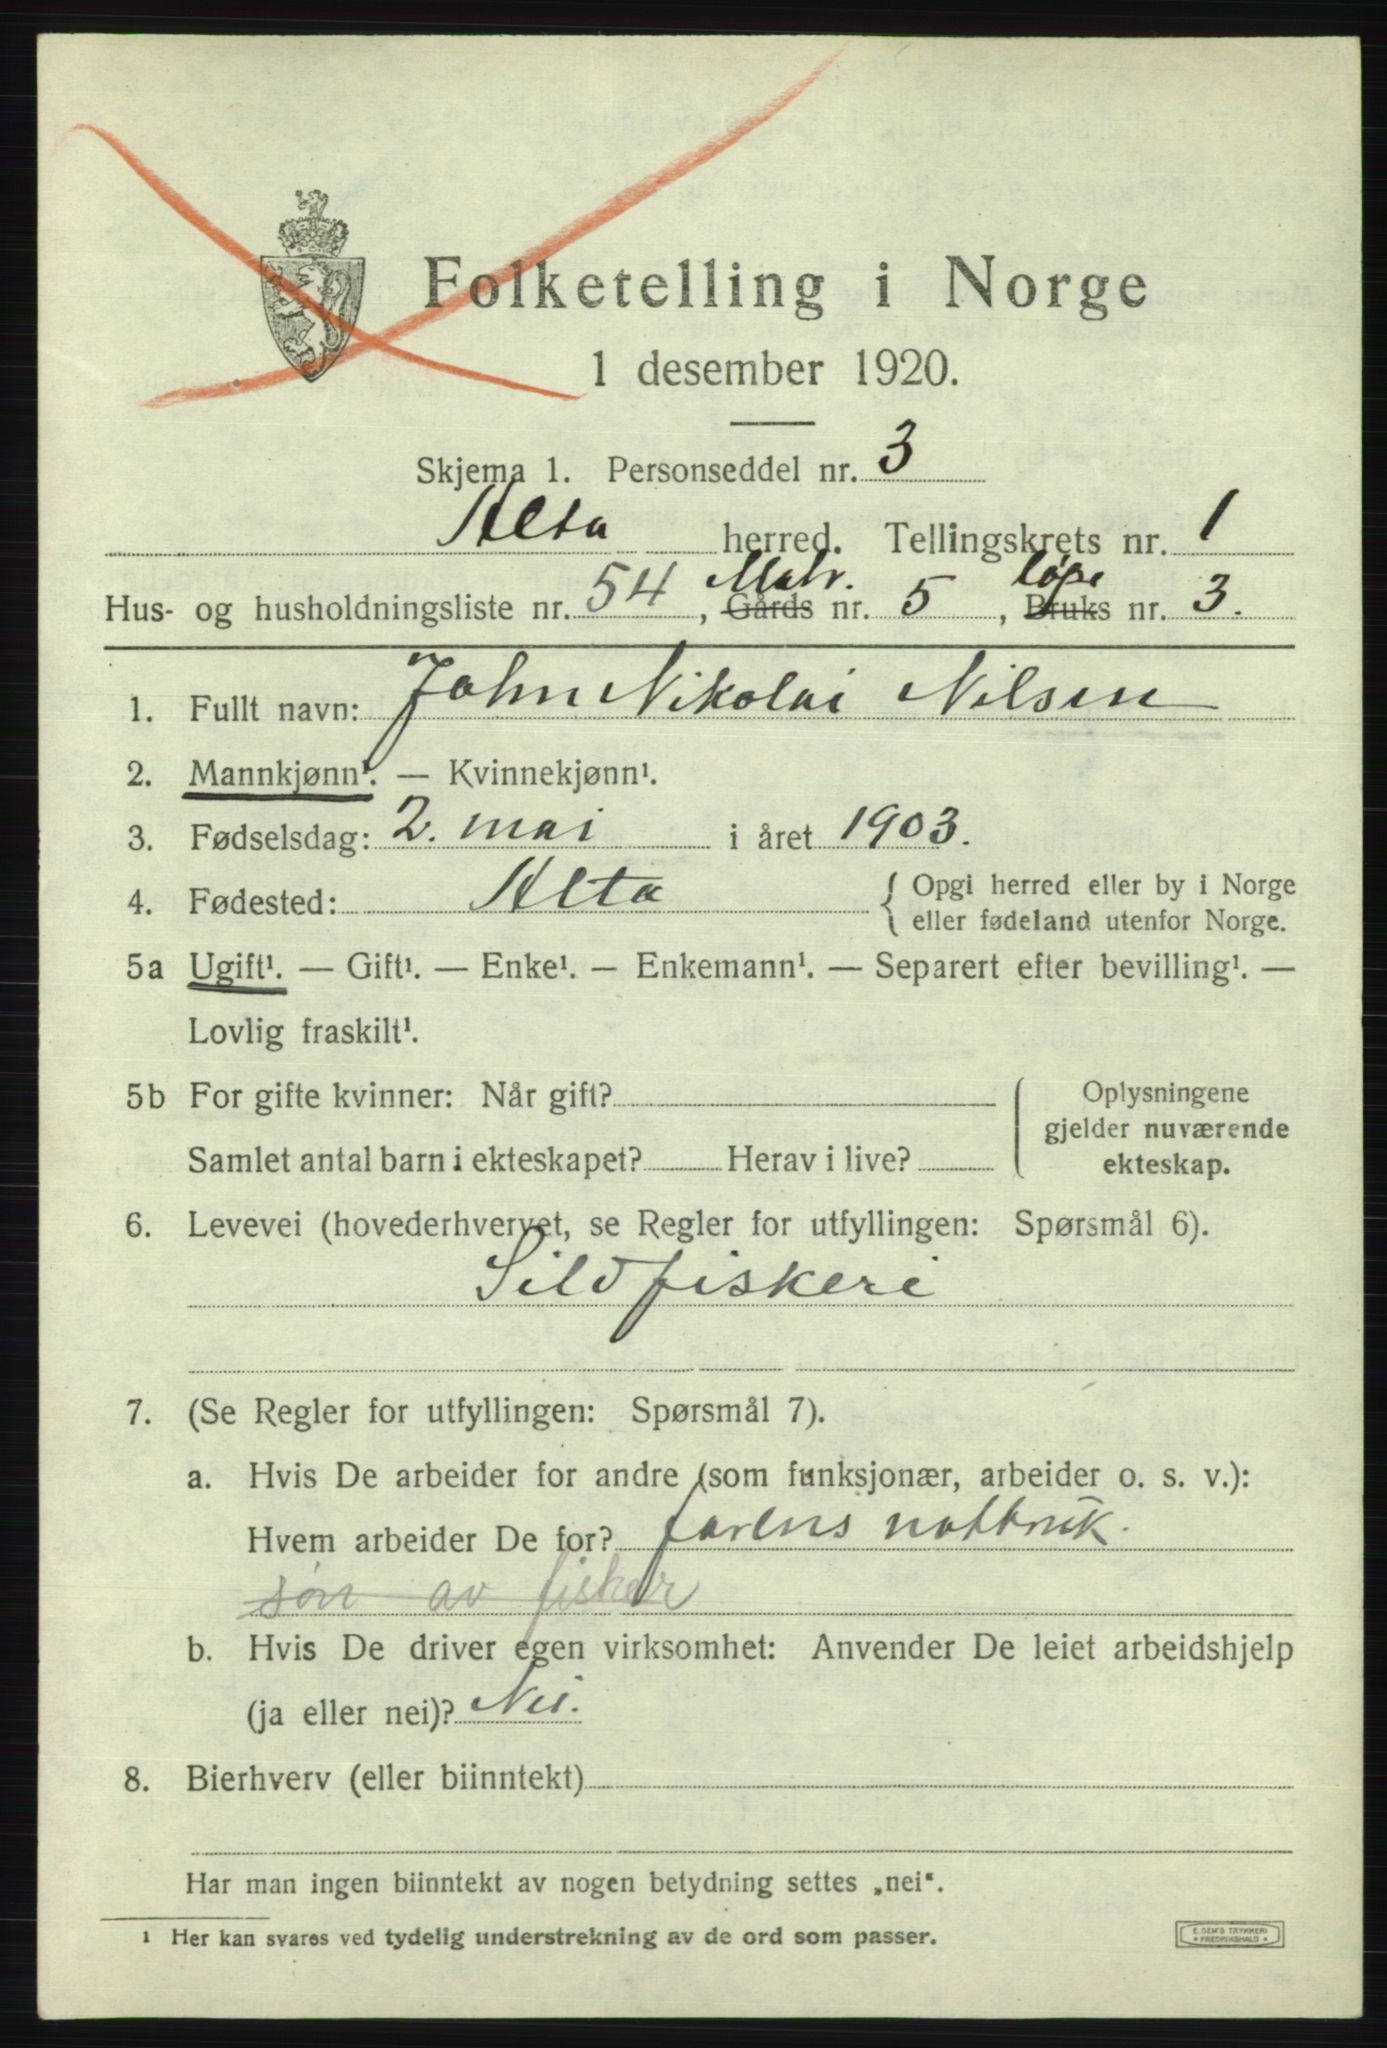 Folketelling i Norge
1 desember 1920.
Skjema 1. Personseddel nr. 3
Alta herred. Tellingskrets nr. 1
Matr. løpe
Hus- og husholdningsliste nr. 54, Gårds nr. 5, Bruks nr. 3.
1. Fullt navn: John Nikolai Nilsen
2. Mannkjønn¹. — Kvinnekjønn¹.
3. Fødselsdag: 2. mai i året 1903.
4. Fødested: Alta { Opgi herred eller by i Norge
eller fødeland utenfor Norge.
5a Ugift¹. — Gift¹. — Enke¹. — Enkemann¹. — Separert efter bevilling¹. —
Lovlig fraskilt¹.
5b For gifte kvinner: Når gift? Oplysningene
gjelder nuværende
Samlet antal barn i ekteskapet? Herav i live? ekteskap.
6. Levevei (hovederhvervet, se Regler for utfyllingen: Spørsmål 6).
Sildfiskeri
7. (Se Regler for utfyllingen: Spørsmål 7).
a. Hvis De arbeider for andre (som funksjonær, arbeider o. s. v.):
Hvem arbeider De for? farens notbruk.
søn av fisker
b. Hvis De driver egen virksomhet: Anvender De leiet arbeidshjelp
(ja eller nei)? Nei.
8. Bierhverv (eller biinntekt)
Har man ingen biinntekt av nogen betydning settes „nei“.
¹ Her kan svares ved tydelig understrekning av de ord som passer.
E. SEM'S TRYKKERI
* FREDRIKSHALD *